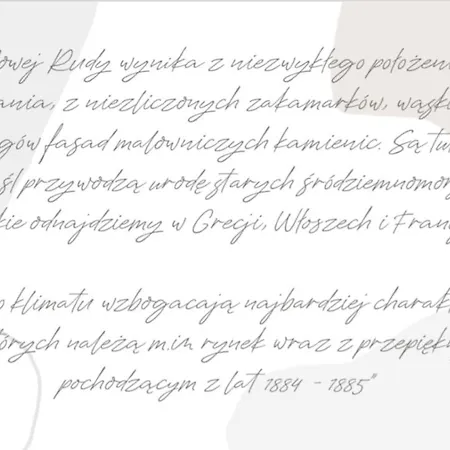 owej Rudy wynika z niezwykłego położeni
ania, z niezliczonych zakamarków, wąski
gów fasad malowniczych kamienic. Są tu
śl przywodzą urodę starych śródziemnomor
kie odnajdziemy w Grecji, Włoszech i Fran
o klimatu wzbogacają najbardziej charak
tórych należą m.in rynek wraz z przepięk
pochodzącym z lat 1884 - 1885"